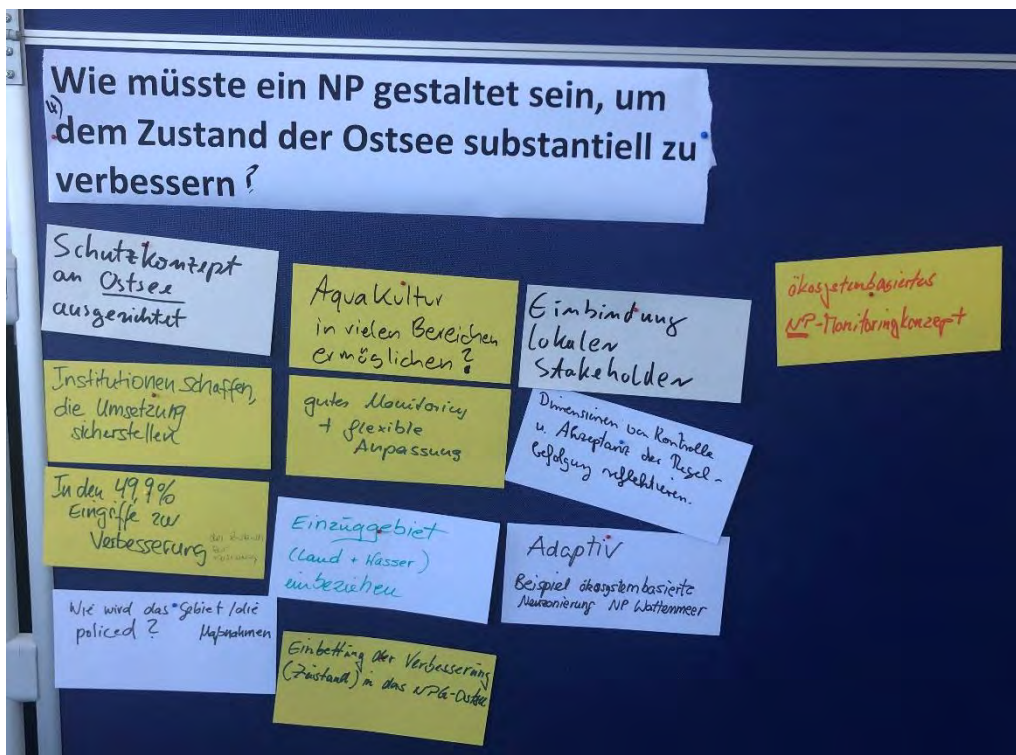 Wie müsste ein NP gestaltet sein, um
dem Zustand der Ostsee substantiell zu
verbessern ?
Schutzkonzept
an Ostsee
ausgerichtet
Institutionen schaffen,
die Umsetzung
sicherstellen
In den 49,9%
Eingriffe zur
Verbesserung
Wie wird das Gebiet / die
policed ? Maßnahmen
Aquakultur
in vielen Bereichen
ermöglichen ?
gutes Monitoring
+ flexible
Anpassung
Einzuggebiet
(Land + Wasser)
einbeziehen
Einbettung der Verbesserung
(Zustand) in das NPG-Ostsee
Einbindung
lokaler
Stakeholder
Dimensionen von Kontrolle
u. Akzeptanz der Regel-
befolgung reflektieren.
Adaptiv
Beispiel ökosystembasierte
Neuzonierung NP Wattenmeer
ökosystembasiertes
NP-Monitoringkonzept